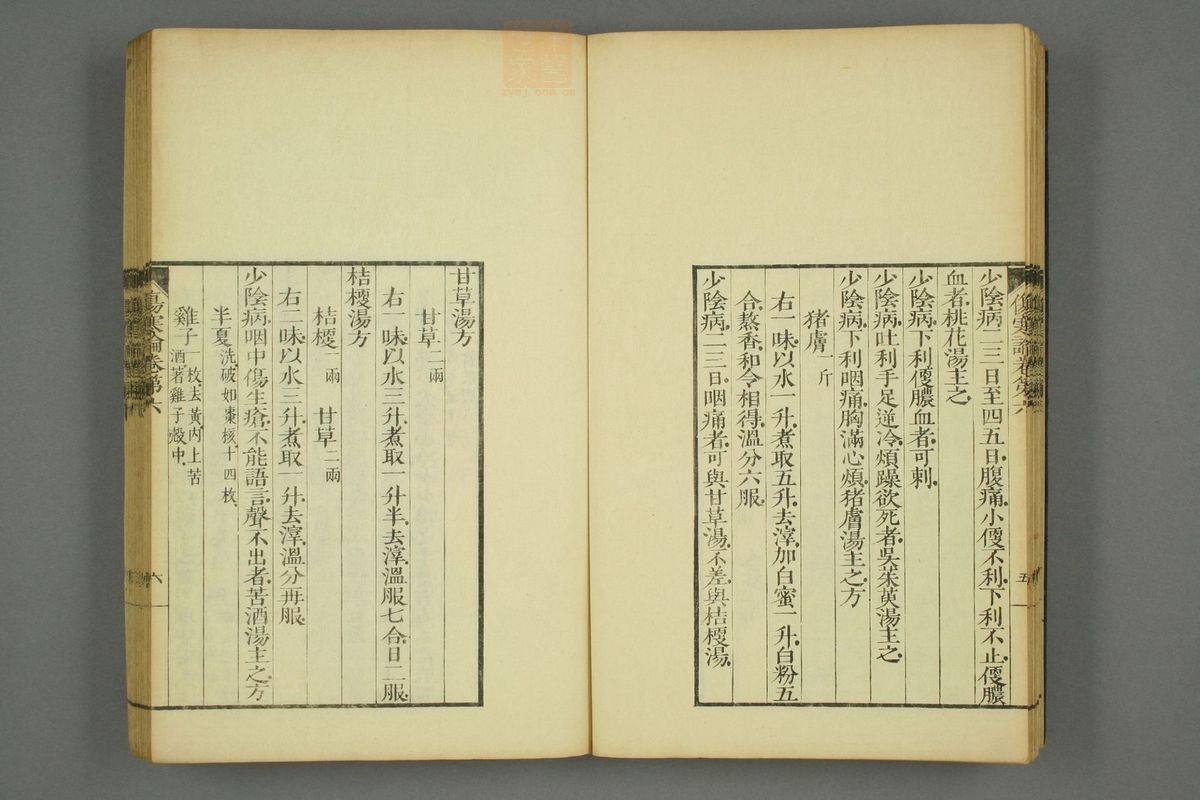 少陰病二三日至四五日腹痛小便不利下利不止便膿
血者桃花湯主之
少陰病下利便膿血者可刺
少陰病吐利手足逆冷煩躁欲死者吳茱萸湯主之
少陰病下利咽痛胸滿心煩猪膚湯主之方
猪膚一斤
右一味以水一升煮取五升去滓加白蜜一升白粉五
合熬香和令相得溫分六服
少陰病二三日咽痛者可與甘草湯不差與桔梗湯
傷寒論卷第六
五
甘草湯方
甘草二兩
右一味以水三升煮取一升半去滓溫服七合日二服
桔梗湯方
桔梗一兩 甘草二兩
右二味以水三升煮取一升去滓溫分再服
少陰病咽中傷生瘡不能語言聲不出者苦酒湯主之方
半夏洗破如棗核十四枚
雞子一枚去黃內上苦
酒著雞子殼中
傷寒論卷第六
六
zysj.com.cn